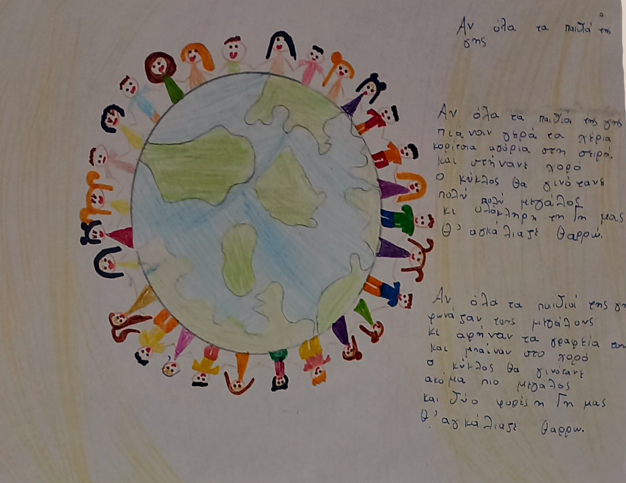 Αν όλα τα παιδιά της
γης
Αν όλα τα παιδιά της γης
πιάναν γερά τα χέρια
κορίτσια αγόρια στη σειρά
και στήνανε χορό
ο κύκλος θα γινότανε
πολύ πολύ μεγάλος
κι ολόκληρη τη Γη μας
θ' αγκάλιαζε θαρρώ.
Αν όλα τα παιδιά της γης
φωνάζαν τους μεγάλους
κι αφήναν τα γραφεία τους
και μπαίναν στο χορό
ο κύκλος θα γινότανε
ακόμα πιο μεγάλος
και δύο φορές η Γη μας
θ' αγκάλιαζε θαρρώ.